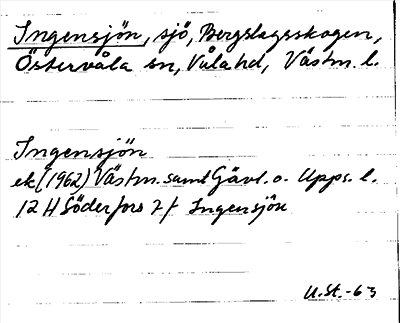 Ingensjön, sjö, Bergslagsskogen,
Östervåla sn, Våla hd, Västm. l.
Ingensjön
ek (1962) Västm. samt Gävl. o. Upps. l.
12 H Söderfors 7 f Ingensjön
U.St.-63